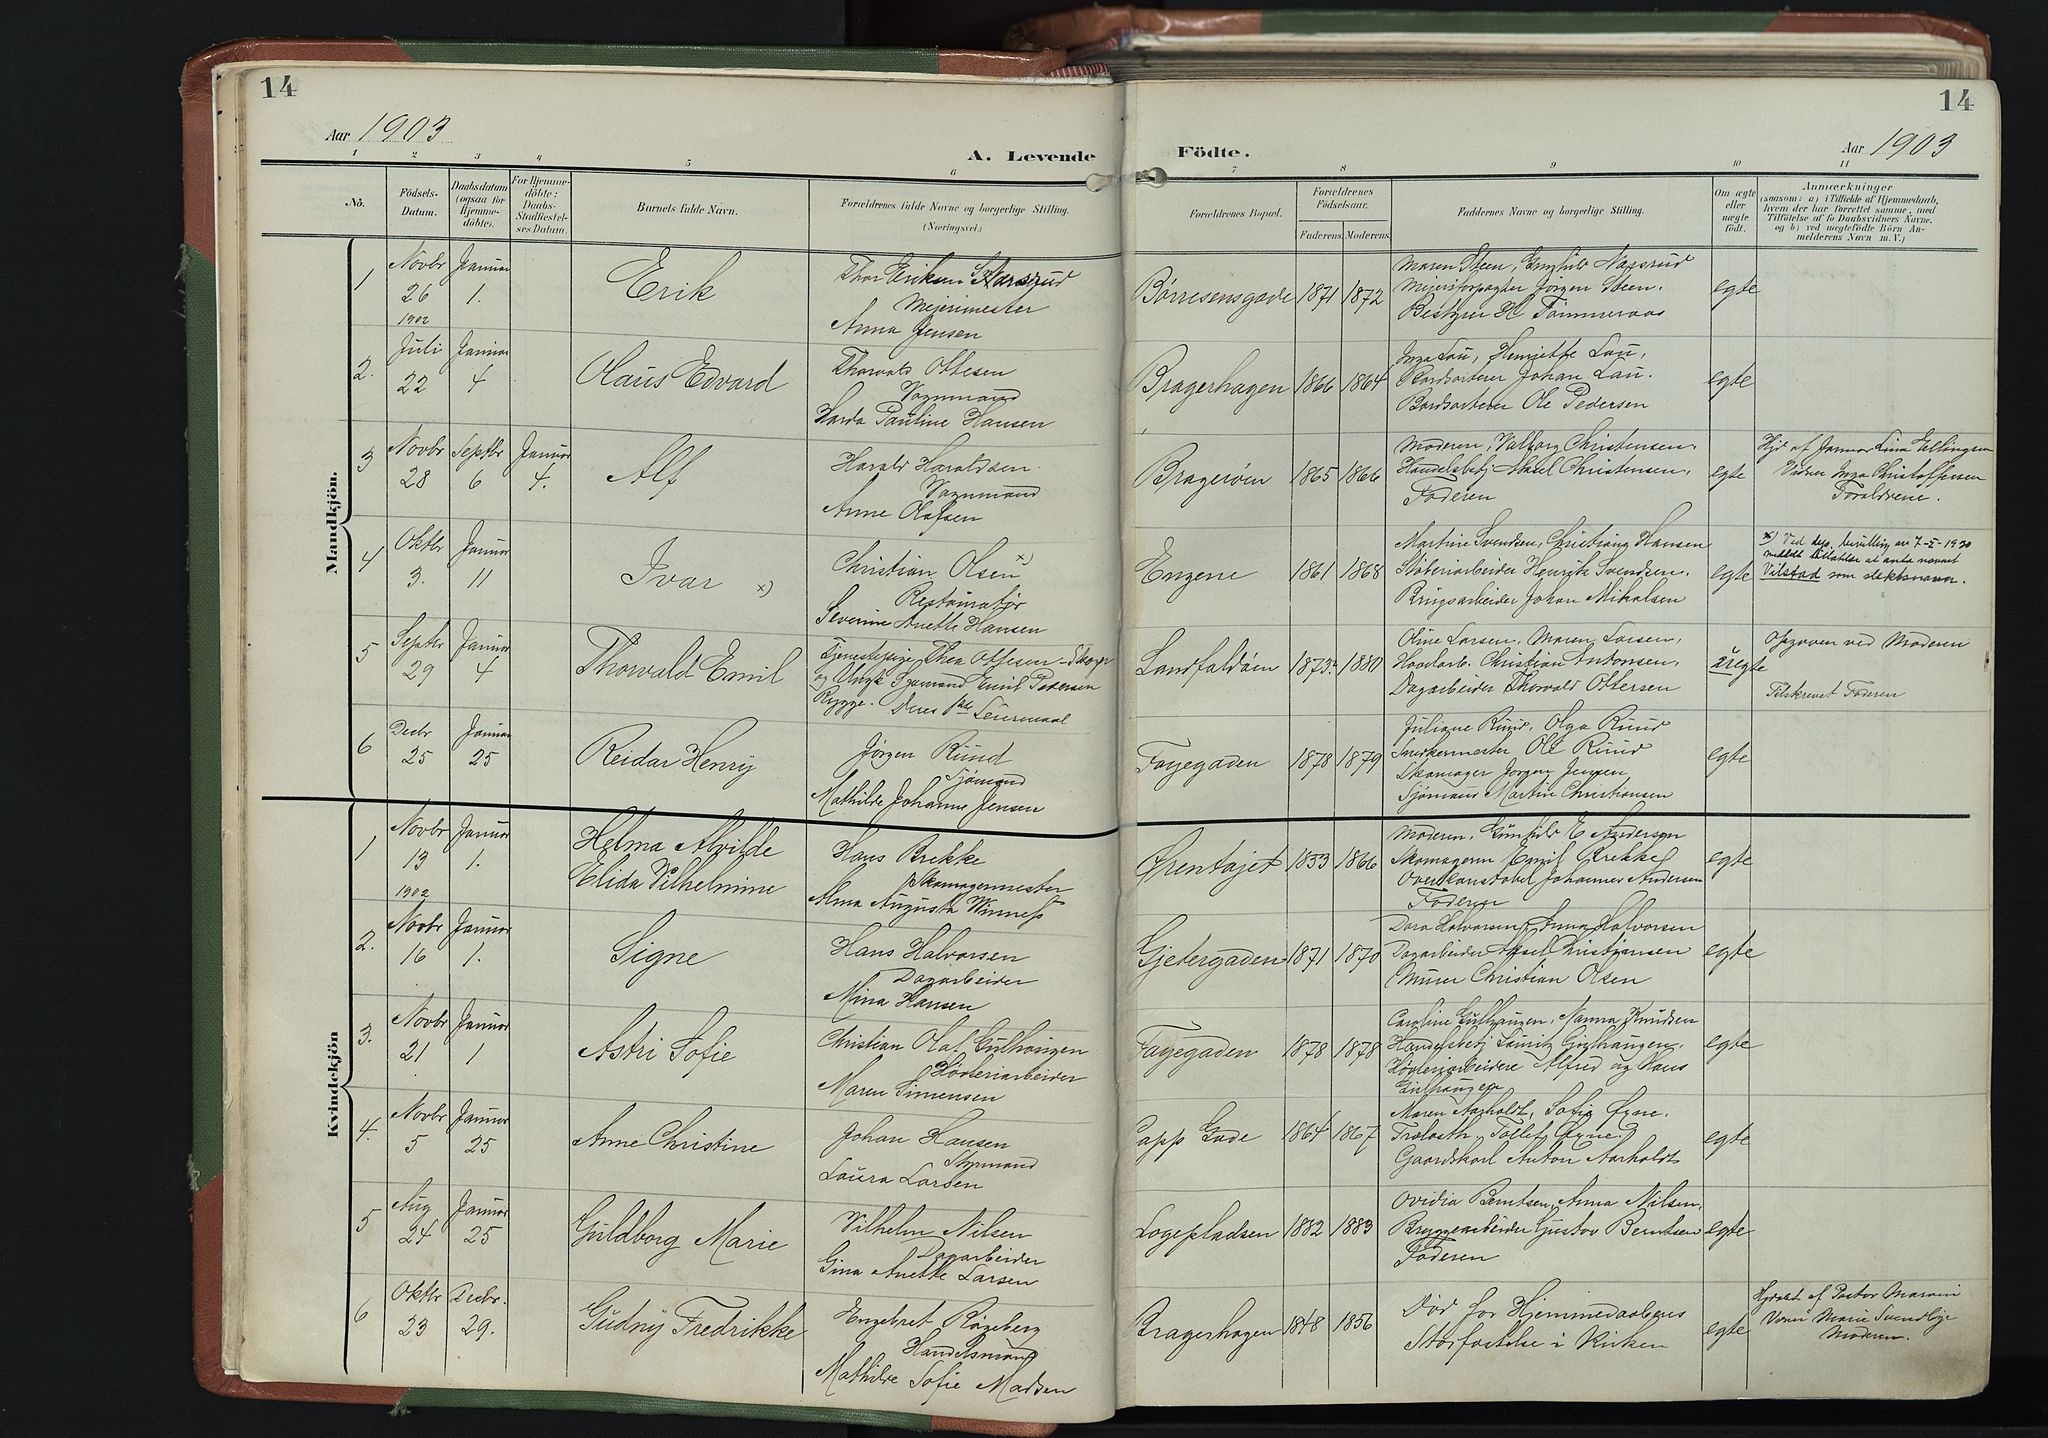 14
14
Aar 1903
Aar 1903
A. Levende Födte.
1 2 3 4 5 6 7 8 9 10 11
Nö.
Födsels-Datum.
Daabsdatum (ogsaa for Hjemmedöbte).
For Hjemmedöbte: Daabs-Stadfæstelses Datum.
Barnets fulde Navn.
Forældrenes fulde Navne og borgerlige Stilling.
(Næringsvei.)
Forældrenes Bopæl.
Forældrenes Födselsaar.
Faderens. Moderens.
Faddernes Navne og borgerlige Stilling.
Om ægte eller uægte födt.
Anmærkninger
(saasom: a) i Tilfælde af Hjemmedaab,
hvem der har forrettet samme, med
Tilföielse af to Daabsvidners Navne,
og b) ved uægtefödte Börn An-
melderens Navn m. V.)
Mandkjön.
1
Novbr 26 1902
Januar 1.
Erik
Thor Eriksen
Mejerimester
Anna Jensen
Börresensgade
1871 1872
Maren Steen, Gunhild Nassrud
Mejeriforpagter Jörgen Steen.
Bestyrer H Tömmeraas
egte
2.
Juli 22
Januar 4
Olaus Edvard
Thorvald Ottesen
Vognmand
Pauline Hansen
Bragerhagen
1866 1864
Inga Lau, Henriette Lau,
Bordsorterer Johan Lau.
Bordsorterer Ole Pedersen
egte
3
Novbr 28
Septbr 6
Januar 4.
Alf
Harald Haraldsen.
Vognmand
Anne Olafsen
Brageröen
1865 1866
Moderen, Valborg Christensen.
Handelsbetj Aksel Christensen,
Faderen
egte
Hjd af Jordmor Lina Ellingsen
Vidner Inga Christoffersen
Forældrene.
4
Oktbr 3.
Januar 11
Ivar x)
Christian Olsen x)
Restauratör
Severine Anette Hansen
Engene
1861 1868
Martine Svendsen, Christiane Hansen
Henrik Svendsen.
Brugsarbeider Johan Mikalsen
egte
x) Ved dep. bevilling av 7-5-1920
meddelt tillatelse at anta navnet
Vilstad som slektsnavn.
5
Septbr 29
Januar 4
Thorvald Emil
Tjenestepige Thea Ottesen
og Ungk Sjømand Emil Pedersen
Rygge. Deres 1ste Leiermaal
Landfaldöen
1873 1880
Oline Larsen, Maren Larsen,
Christian Antonsen,
Dagarbeider Thorvald Ottersen
uegte
Opgaven ved Moderen
Tilskrevet Faderen
6
Decbr 25
Januar 25
Reidar Henry
Jörgen Ruud
Sjömand
Mathilde Johanne Jensen
Fayegaden
1878 1879
Juliane Ruud, Olga Ruud
Snekkermester Ole Ruud
Skomager Jörgen Jensen
Sjömand Martin Christiansen
egte
Kvindekjön
1
Novbr 13 1902
Januar 1.
Helma Alvilde
Elida Vilhelmine
Hans Brekke
Skomagermester
Alma Augusta
Örentöjet
1833 1866
Moderen, Gunhild E Andersen
Skomagerm Emil Brekke
Overkonstabel Johannes Andersen
Faderen
egte
2.
Novbr 16
Januar 1.
Signe
Hans Halvorsen
Dagarbeider
Mina Hansen
Gjetergaden
1871 1870
Dora Halvorsen, Anna Halvorsen
Dagarbeider Aksel Christiansen
Murer Christian Olsen
egte
3.
Novbr 21
Januar 1
Astri Sofie
Christian Olaf Gulhaugen
Hövleriarbeider
Maren Simensen
Fayegaden
1878 1878
Caroline Gulhaugen, Nanna Knudsen
Handelsbetj Gulhaugen,
Hövleriarbeidere Alfred og Hans
Gulhaugen
egte
4.
Novbr 5
Januar 25
Anne Christine
Johan Hansen
Styrmand
Laura Larsen
Capp Gade
1864 1867
Maren Aarholdt, Sofie Øyne.
Tollef Øyne
Gaardskarl Anton Aarholdt
egte
5
Aug 24
Januar 25
Guldborg Marie
Vilhelm Nilsen
Dagarbeider
Gina Anette Larsen
Logepladsen
1882 1883
Ovidia Berntsen, Anna Nilsen,
Bryggearbeider Gustav Berntsen
Faderen
egte
6
Oktbr 23
Decbr. 29.
Gudny Fredrikke
Engebret Rögeberg
Handelsmand
Mathilde Sofie Madsen
Bragerhagen
1848 1856
Död för Hjemmedaabens
Stadfæstelse i Kirken
egte
Hjdöbt af Pastor
Marie
Moderen.